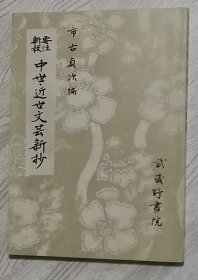 要注
新校
中世・近世文芸新抄
市古貞次編
武蔵野書院